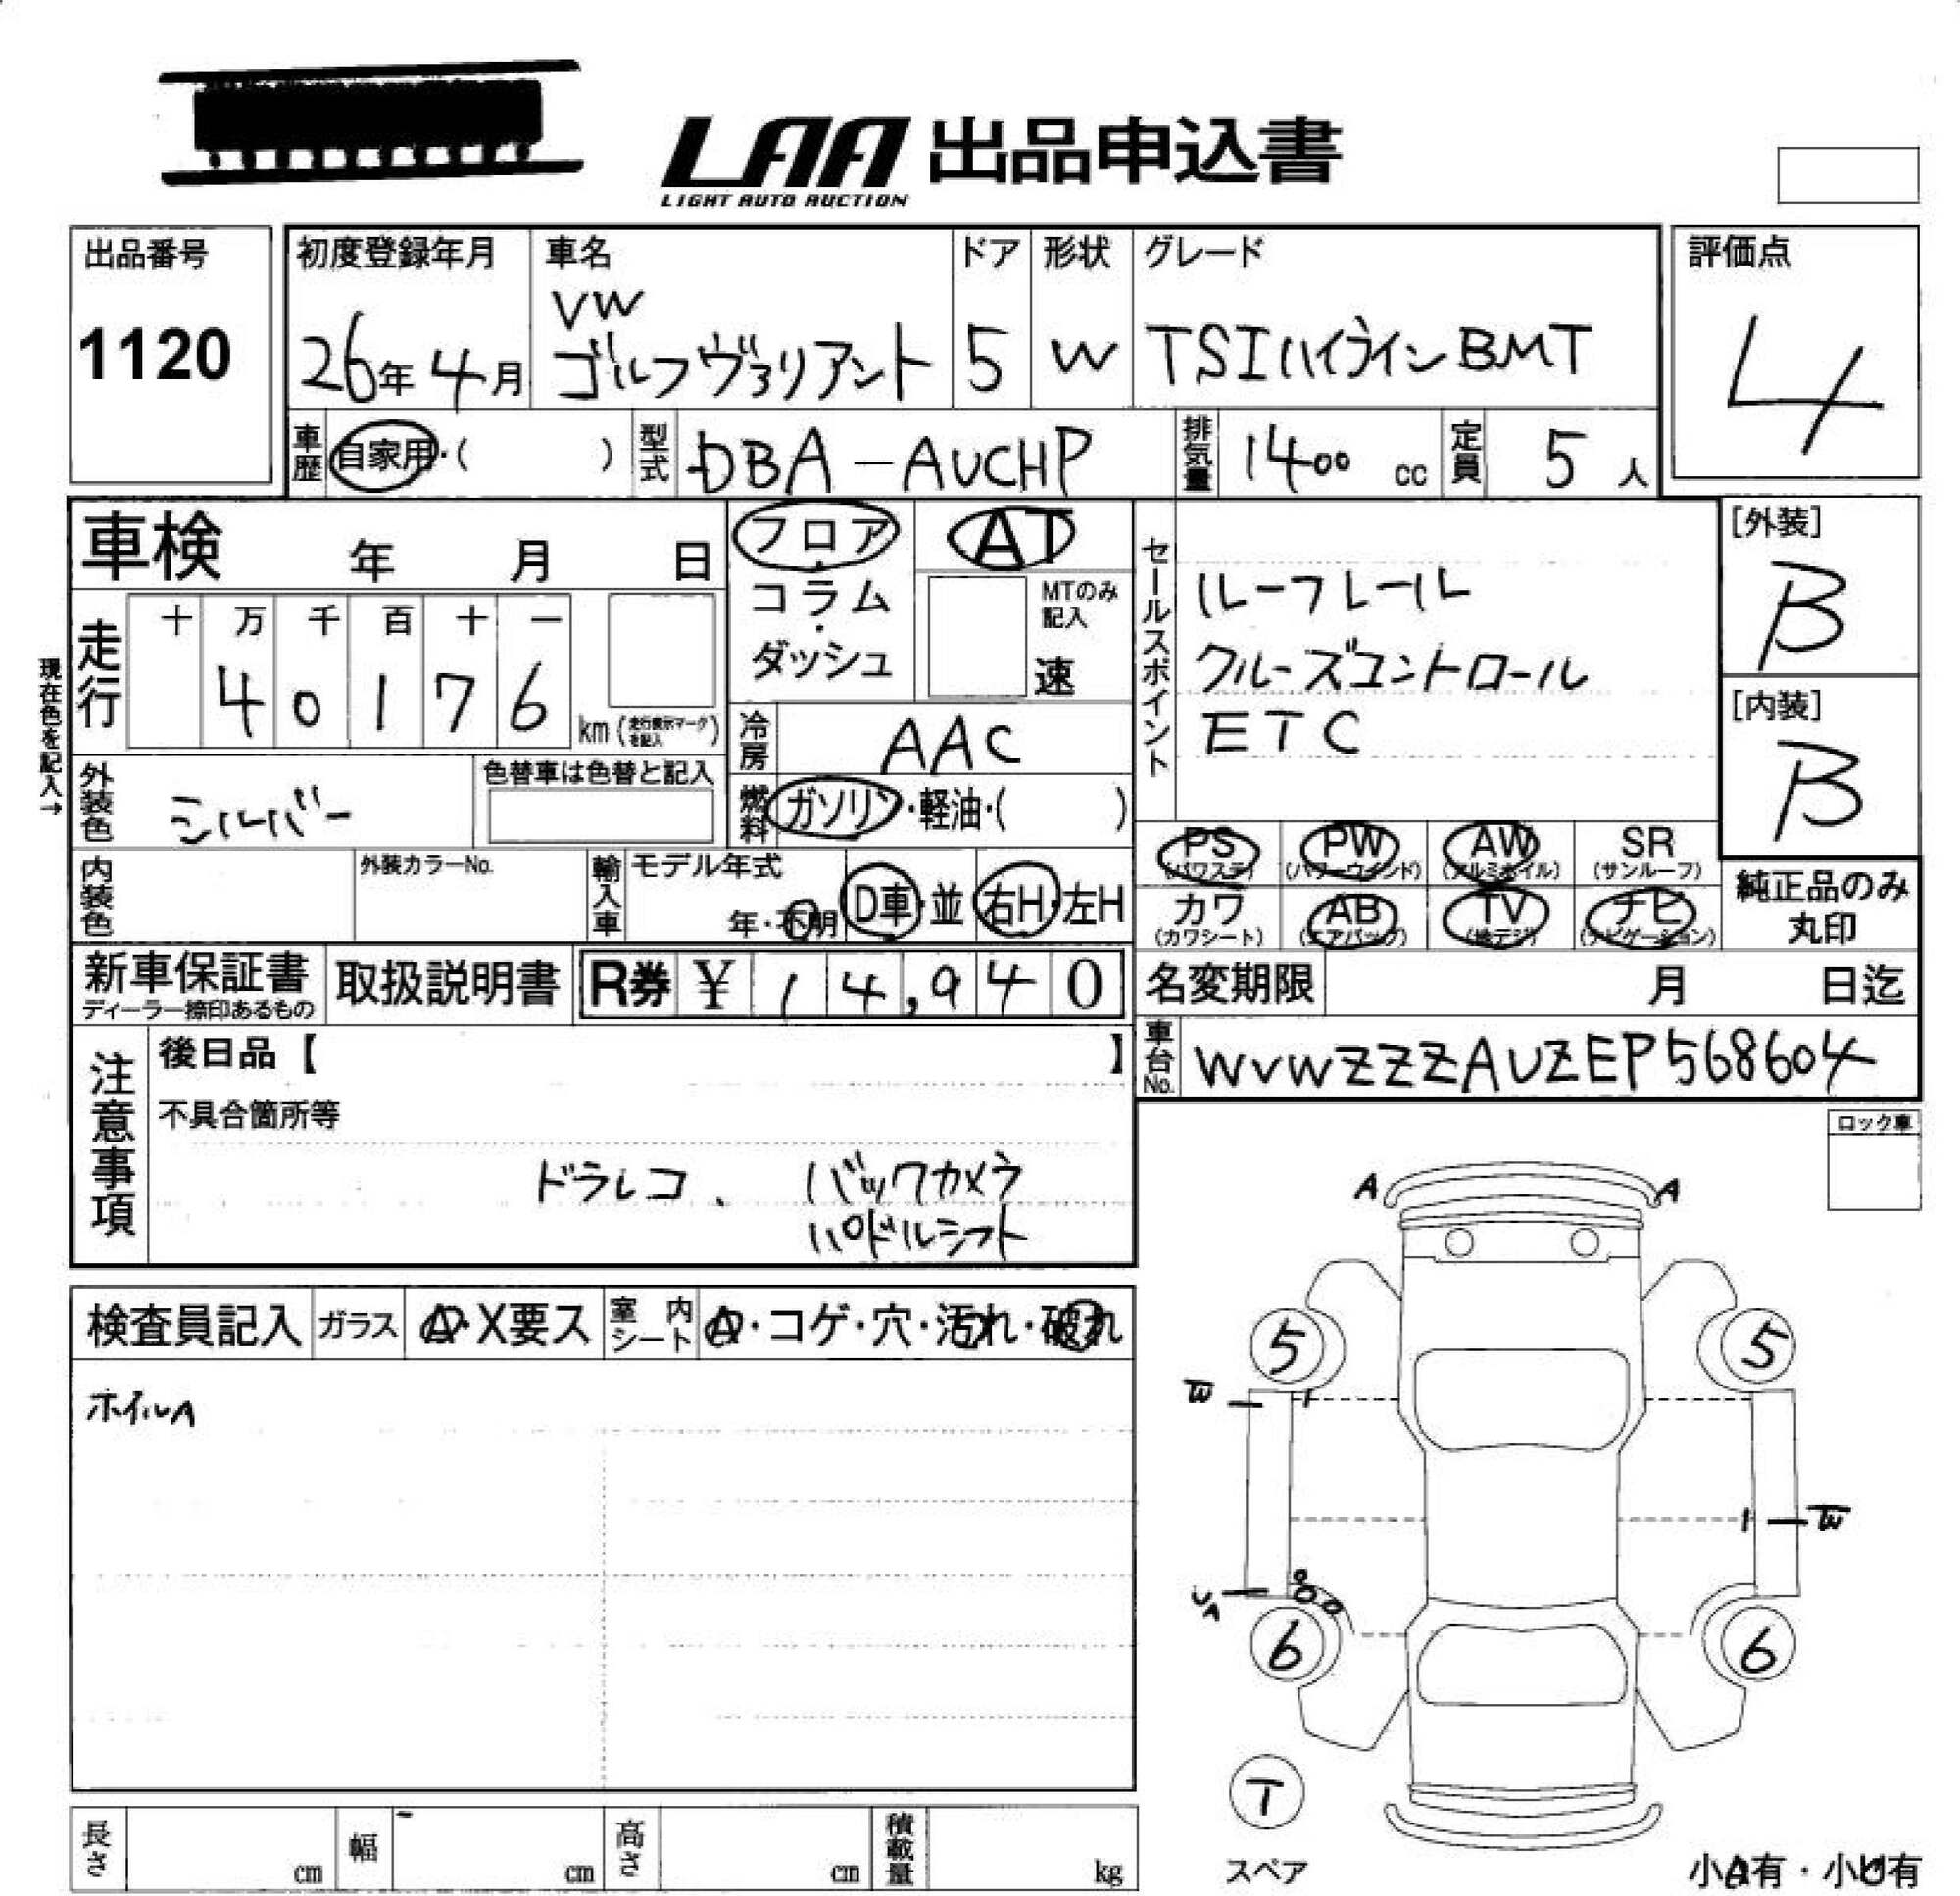 LAA 出品申込書
LIGHT AUTO AUCTION
出品番号
1120
初度登録年月
26年4月
車名
VW
ゴルフヴァリアント
ドア
5
形状
W
グレード
TSIハイラインBMT
評価点
4
車歴 自家用・( )
型式 DBA-AUCHP
排気量 1400 cc
定員 5 人
車検 年 月 日
フロア・コラム・ダッシュ
AT
MTのみ記入
速
セールスポイント
ルーフレール
クルーズコントロール
ETC
[外装]
B
[内装]
B
現在色を記入→
走行
十 万 千 百 十 一
4 0 1 7 6
km (走行表示マークを記入)
冷房 AAC
外装色 シルバー
色替車は色替と記入
燃料 ガソリン・軽油・( )
PS (パワステ)
PW (パワーウインド)
AW (アルミホイル)
SR (サンルーフ)
カワ (カワシート)
AB (エアバッグ)
TV (地デジ)
ナビ (ナビゲーション)
純正品のみ丸印
内装色
外装カラーNo.
輸入車
モデル年式
年・不明
D車・並
右H・左H
新車保証書
ディーラー捺印あるもの
取扱説明書
R券 ¥ 14,940
名変期限 月 日迄
車台No. WVWZZZAUZEP568604
注意事項
後日品【 】
不具合箇所等
ドラレコ、 バックカメラ
パドルシフト
ロック車
検査員記入
ガラス A・X要ス
室内シート A・コゲ・穴・汚れ・破れ
ホイルA
A A
5 5
W
W
UA
6 6
T
スペア
小A有・小U有
長さ cm
幅 cm
高さ cm
積載量 kg